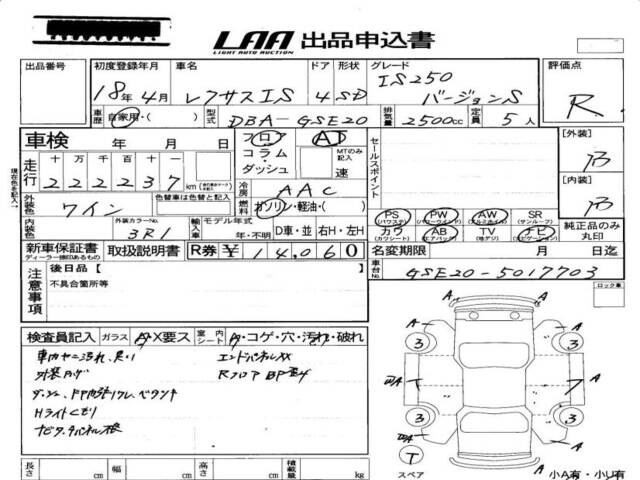 LAA 出品申込書
LIGHT AUTO AUCTION
出品番号 初度登録年月 車名 ドア 形状 グレード 評価点
18年4月 レクサスIS 4 SD IS250 バージョンS R
車歴 自家用・( ) 型式 DBA-GSE20 排気量 2500cc 定員 5人
車検 年 月 日
フロア コラム・ダッシュ AT MTのみ記入 速
走行 十万千百十一 222237 km
冷房 AAC
外装色 ワイン 色替車は色替と記入
燃料 ガソリン・軽油・( )
内装色 外装カラーNo. 3R1
輸入車 モデル年式 年・不明 D車・並 右H・左H
セールスポイント
[外装] B
[内装] B
PS (パワステ) PW (パワーウインド) AW (アルミホイル) SR (サンルーフ)
カワ (カワシート) AB (エアバッグ) TV (地デジ) ナビ (ナビゲーション)
純正品のみ丸印
新車保証書 ディーラー捺印あるもの 取扱説明書 R券 ¥14,060
名変期限 月 日迄
車台No. GSE20-5017703
注意事項 後日品 [ ]
不具合箇所等
ロック車
検査員記入 ガラス A・X要ス 室内シート A・コゲ・穴・汚れ・破れ
車内ヤニ汚れ、臭い エンドパネルXX
外装
Hライトくもり
A A A A A A A
3 3 3 3
T
スペア
小A有・小U有
長さ cm 幅 cm 高さ cm 積載量 kg
現在色を記入